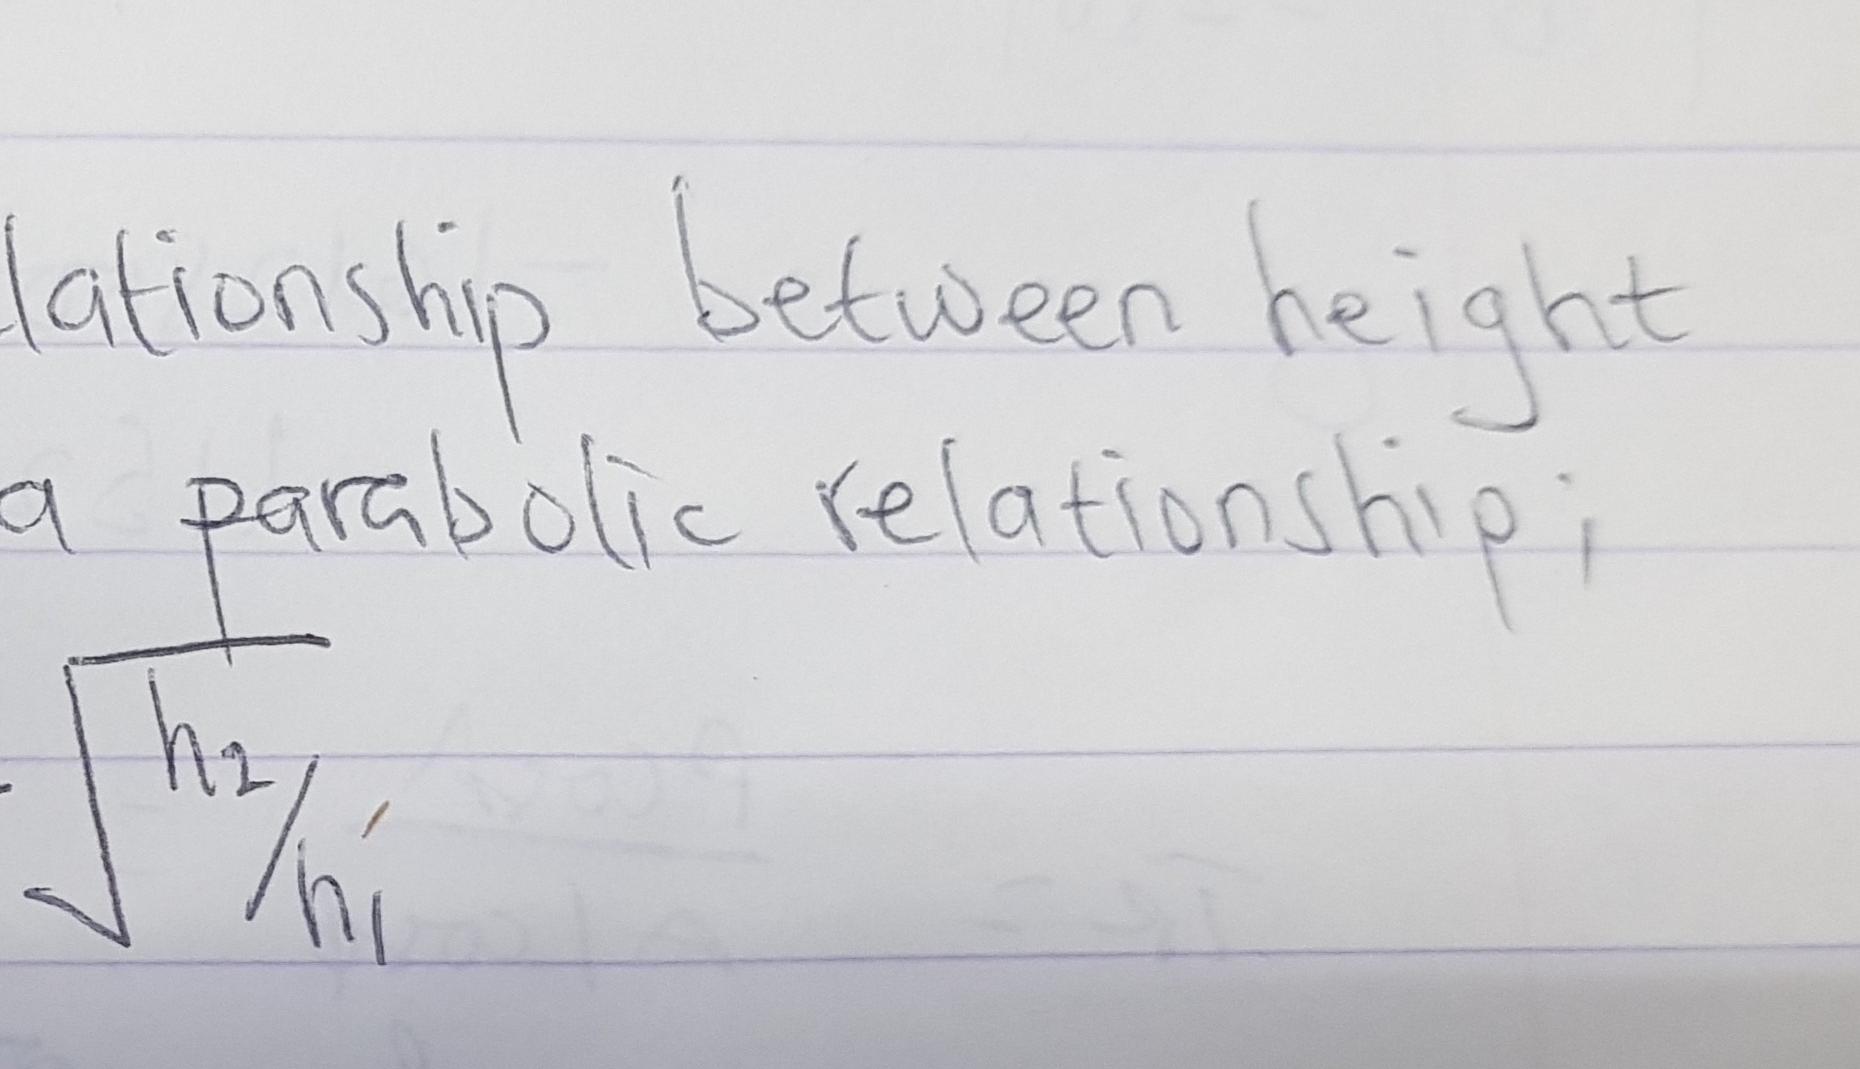 lationship between height
a parabolic relationship;
√h₂/h₁